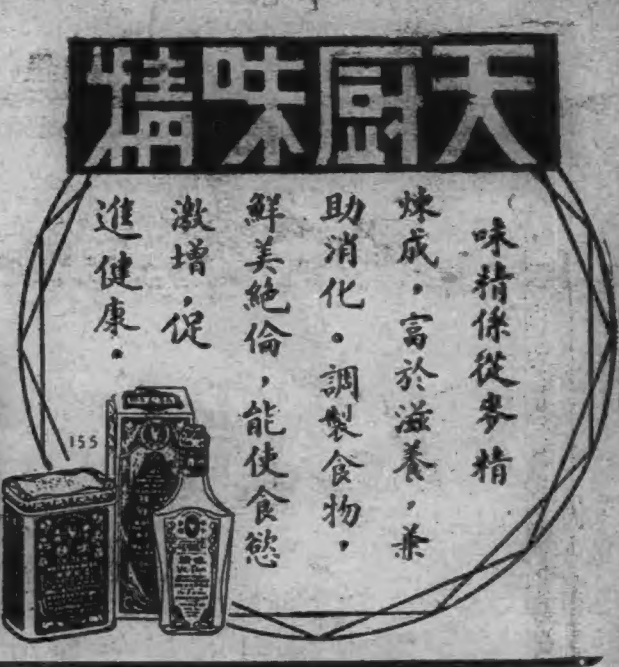 天厨味精
味精係從麥精
煉成，富於滋養，兼
助消化。調製食物，
鮮美絕倫，能使食慾
激增，促
進健康。
155